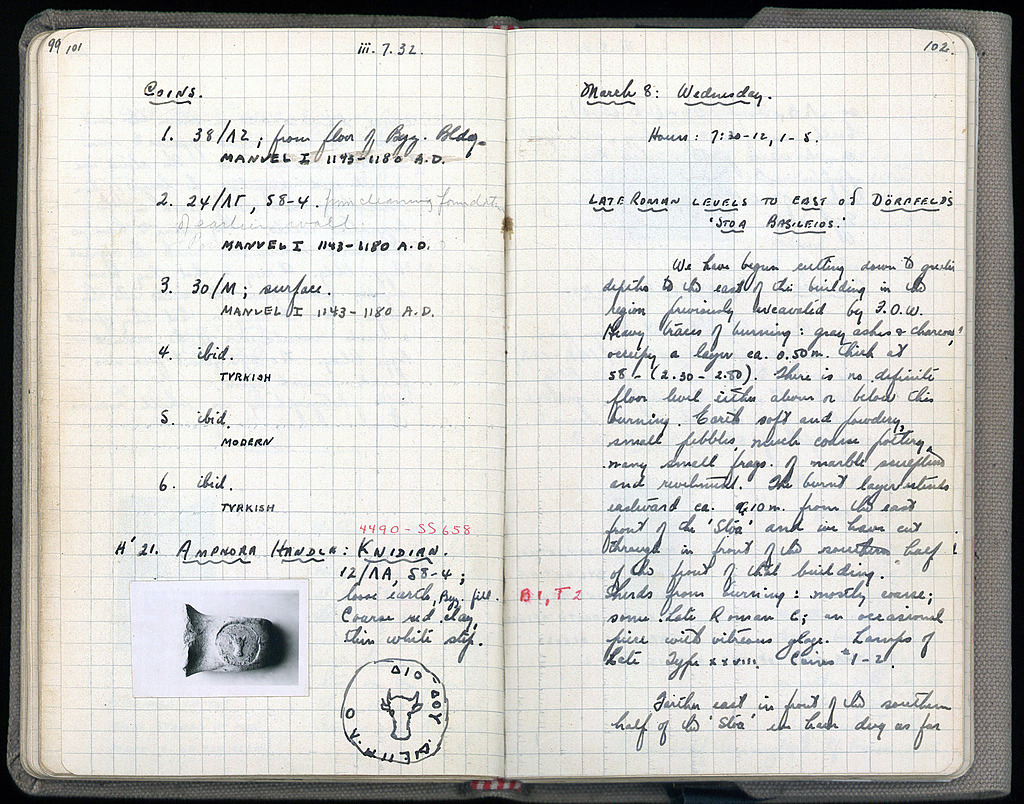 99 101
iii.7.32.
COINS.
1. 38/ΛΖ; from floor of Byz. Bldg.
MANVEL I 1143-1180 A.D.
2. 24/ΛΓ, 58-4. from cleaning foundation
of
MANVEL I 1143-1180 A.D.
3. 30/M; surface.
MANVEL I 1143-1180 A.D.
4. ibid.
TVRKISH
5. ibid.
MODERN
6. ibid.
TVRKISH
4490-SS 658
H' 21. AMPHORA HANDLE: KNIDIAN.
12/ΛΑ, 58-4;
loose earth, Byz. fill.
Coarse red clay,
thin white slip.
ΔΙΟ
102.
March 8: Wednesday.
Hours: 7:30-12, 1-5.
LATE ROMAN LEVELS TO EAST of DÖRPFELD'S
'STOA BASILEIOS.'
We have begun cutting down to greater
depths to the east of the building in the
region previously excavated by F.O.W.
Heavy traces of burning: gray ashes & charcoal,
occupy a layer ca. 0.50 m. thick at
58-(2.30-2.80). There is no definite
floor level either above or below this
burning. Earth soft and powdery,
small pebbles, much coarse pottery,
many small frags. of marble sculpture
and revetment. The burnt layer extends
eastward ca. 10 m. from the east
front of the 'Stoa' and we have cut
through in front of the southern half
of the front of that building.
B1, T2
Sherds from burning: mostly coarse;
some Late Roman C; an occasional
piece with vitreous glaze. Lamps of
Late Type XXVIII. Coins #1-2.
Farther east in front of the southern
half of the 'Stoa' we have dug as far